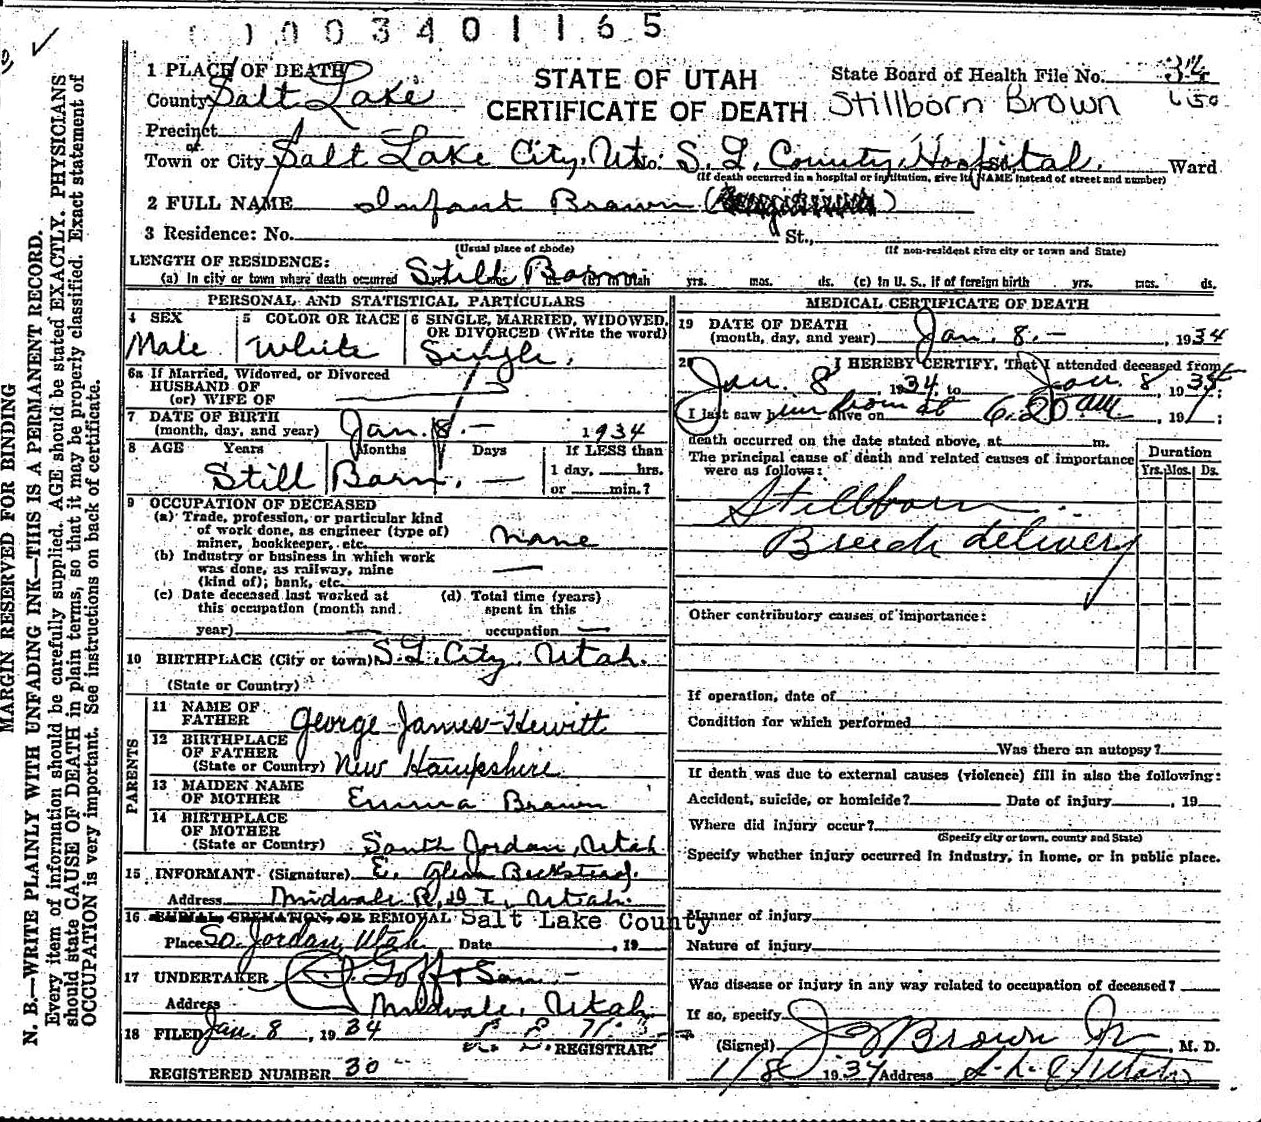 003401165
MARGIN RESERVED FOR BINDING
N. B.—WRITE PLAINLY WITH UNFADING INK—THIS IS A PERMANENT RECORD.
Every item of information should be carefully supplied. AGE should be stated EXACTLY. PHYSICIANS
should state CAUSE OF DEATH in plain terms, so that it may be properly classified. Exact statement of
OCCUPATION is very important. See instructions on back of certificate.
1 PLACE OF DEATH
County Salt Lake
STATE OF UTAH
CERTIFICATE OF DEATH
State Board of Health File No. 34
Stillborn Brown 650
Precinct
or
Town or City Salt Lake City, Ut. No. S. L. County Hospital. Ward
(If death occurred in a hospital or institution, give its NAME instead of street and number)
2 FULL NAME Infant Brown
3 Residence: No. St.,
(Usual place of abode) (If non-resident give city or town and State)
LENGTH OF RESIDENCE:
(a) In city or town where death occurred Still Born (b) In Utah yrs. mos. ds. (c) In U. S., if of foreign birth yrs. mos. ds.
PERSONAL AND STATISTICAL PARTICULARS
4 SEX 5 COLOR OR RACE 6 SINGLE, MARRIED, WIDOWED,
OR DIVORCED (Write the word)
Male White Single.
6a If Married, Widowed, or Divorced
HUSBAND OF
(or) WIFE OF
7 DATE OF BIRTH
(month, day, and year) Jan. 8. - 1934
8 AGE Years Months Days If LESS than
1 day, hrs.
or min.?
Still Born. —
9 OCCUPATION OF DECEASED
(a) Trade, profession, or particular kind
of work done, as engineer (type of)
miner, bookkeeper, etc. None
(b) Industry or business in which work
was done, as railway, mine
(kind of); bank, etc. —
(c) Date deceased last worked at
this occupation (month and
year) —
(d) Total time (years)
spent in this
occupation —
10 BIRTHPLACE (City or town) S. L. City, Utah.
(State or Country)
PARENTS
11 NAME OF
FATHER George James Hewitt
12 BIRTHPLACE
OF FATHER
(State or Country) New Hampshire
13 MAIDEN NAME
OF MOTHER Emma Brown
14 BIRTHPLACE
OF MOTHER
(State or Country) South Jordan, Utah
15 INFORMANT (Signature) E. Glenn Beckstead.
Address Midvale R. D 1, Utah.
16 BURIAL, CREMATION, OR REMOVAL Salt Lake County
Place So. Jordan, Utah Date , 19
17 UNDERTAKER Goff & Son. -
Address Midvale, Utah.
18 FILED Jan. 8, 1934
REGISTRAR
REGISTERED NUMBER 30
MEDICAL CERTIFICATE OF DEATH
19 DATE OF DEATH
(month, day, and year) Jan. 8. - , 1934
20 I HEREBY CERTIFY, That I attended deceased from
Jan. 8 1934, to Jan. 8, 1934;
I last saw him born at alive on 6:20 am, 19 ;
death occurred on the date stated above, at m.
The principal cause of death and related causes of importance
were as follows:
Duration
Yrs. Mos. Ds.
Stillborn
Breech delivery
Other contributory causes of importance:
If operation, date of
Condition for which performed
Was there an autopsy?
If death was due to external causes (violence) fill in also the following:
Accident, suicide, or homicide? Date of injury , 19
Where did injury occur?
(Specify city or town, county and State)
Specify whether injury occurred in industry, in home, or in public place.
Manner of injury
Nature of injury
Was disease or injury in any way related to occupation of deceased?
If so, specify
(Signed) Brown Jr , M. D.
1/8 1934 Address S. L. C Utah